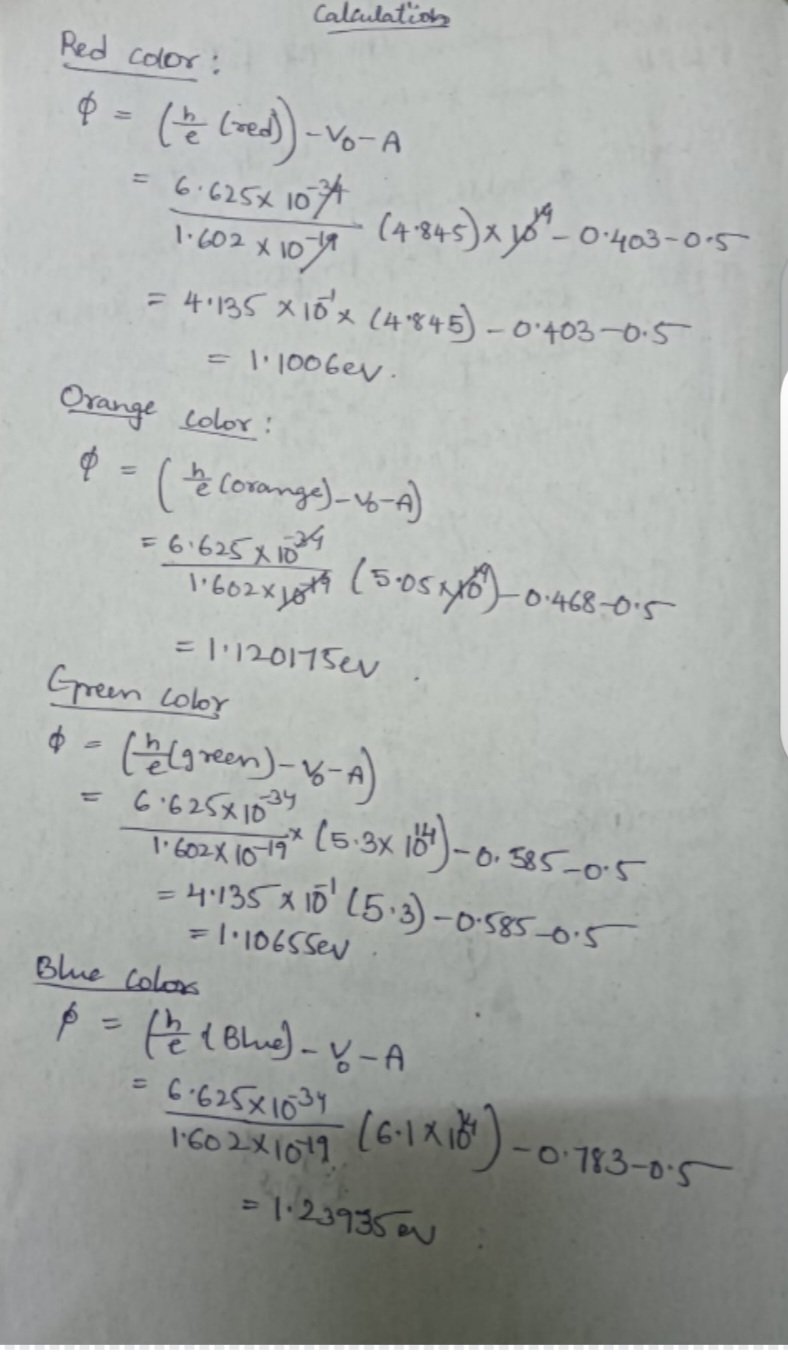 Calculation
Red color:
φ = (h/e (red)) - V₀ - A
= 6.625 x 10⁻³⁴ / 1.602 x 10⁻¹⁹ (4.845) x 10¹⁴ - 0.403 - 0.5
= 4.135 x 10⁻¹ x (4.845) - 0.403 - 0.5
= 1.1006ev.
Orange color:
φ = (h/e (orange) - V₀ - A)
= 6.625 x 10⁻³⁴ / 1.602 x 10⁻¹⁹ (5.05 x 10¹⁴) - 0.468 - 0.5
= 1.120175ev.
Green color
φ = (h/e (green) - V₀ - A)
= 6.625 x 10⁻³⁴ / 1.602 x 10⁻¹⁹ x (5.3 x 10¹⁴) - 0.585 - 0.5
= 4.135 x 10⁻¹ (5.3) - 0.585 - 0.5
= 1.10655ev.
Blue colors
φ = (h/e (Blue) - V₀ - A
= 6.625 x 10⁻³⁴ / 1.602 x 10⁻¹⁹ (6.1 x 10¹⁴) - 0.783 - 0.5
= 1.23935 ev